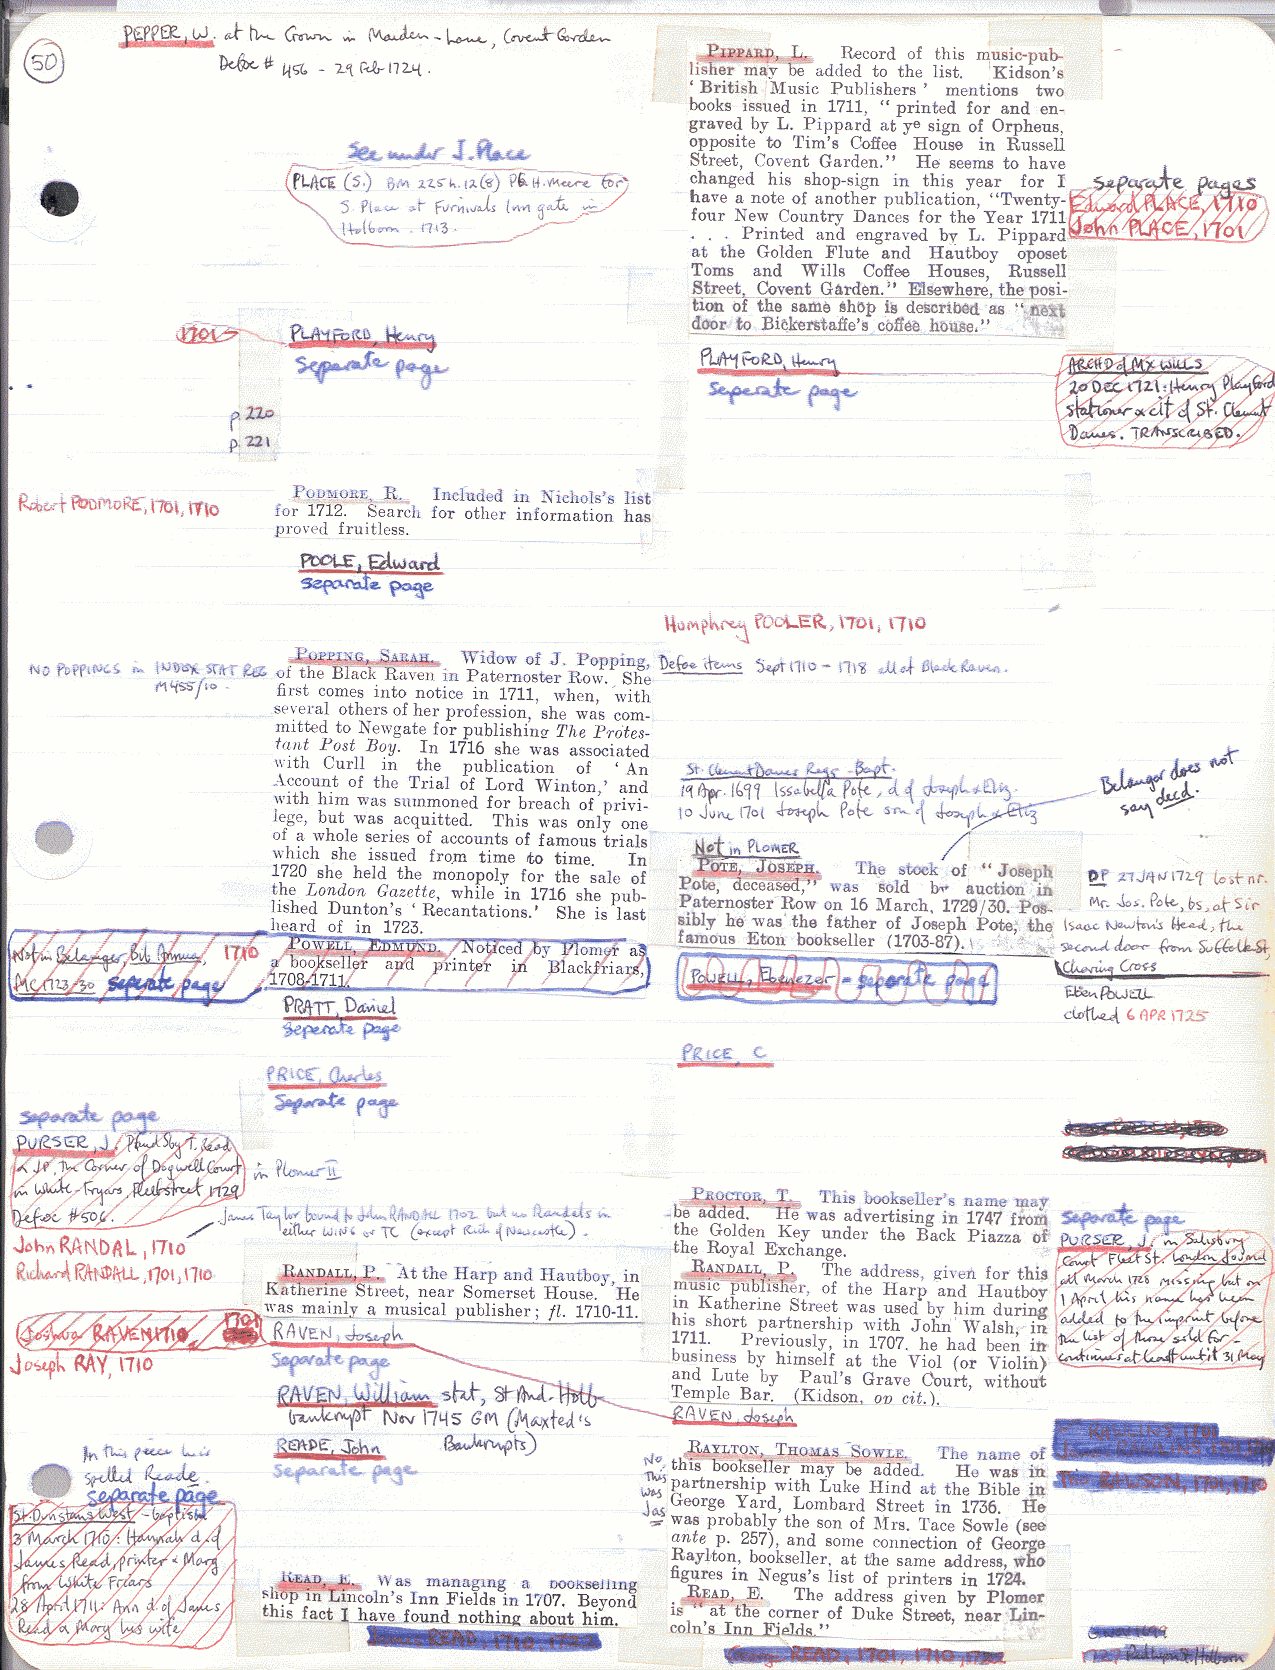 50
PEPPER, W. at the Crown in Maiden-Lane, Covent Garden
Defoe # 456 - 29 Feb 1724.
See under J. Place
PLACE (S.) BM 225 h. 12 (8) H. Meere for
S. Place at Furnivals Inn gate in
Holborn. 1713.
1701
PLAYFORD, Henry
separate page
p. 220
p. 221
Robert PODMORE, 1701, 1710
PODMORE, R. Included in Nichols's list
for 1712. Search for other information has
proved fruitless.
POOLE, Edward
separate page
NO POPPINGS in INDEX STAT REG
M455/10.
POPPING, SARAH. Widow of J. Popping,
of the Black Raven in Paternoster Row. She
first comes into notice in 1711, when, with
several others of her profession, she was com-
mitted to Newgate for publishing The Protes-
tant Post Boy. In 1716 she was associated
with Curll in the publication of ' An
Account of the Trial of Lord Winton,' and
with him was summoned for breach of privi-
lege, but was acquitted. This was only one
of a whole series of accounts of famous trials
which she issued from time to time. In
1720 she held the monopoly for the sale of
the London Gazette, while in 1716 she pub-
lished Dunton's ' Recantations.' She is last
heard of in 1723.
Not in Belanger, Bib Annua, 1710
MC 1723/30 seperate page
POWELL, EDMUND. Noticed by Plomer as
a bookseller and printer in Blackfriars,
1708-1711.
PRATT, Daniel
seperate page
PRICE, Charles
Separate page
separate page
PURSER, J. P and S by T. Read
& J P. The Corner of Dogwell Court
in White-Fryars, Fleet street 1729
Defoe #506.
in Plomer II
James Taylor bound to John RANDALL 1702 but no Randals in
either WING or TC (except Rich of Newcastle).
John RANDAL, 1710
Richard RANDALL, 1701, 1710
RANDALL, P. At the Harp and Hautboy, in
Katherine Street, near Somerset House. He
was mainly a musical publisher; fl. 1710-11.
Joshua RAVEN 1710
1701
RAVEN, Joseph
Separate page
Joseph RAY, 1710
RAVEN, William stat, St And. Holb
bankrupt Nov 1745 GM (Maxted's
Bankrupts)
READE, John
Separate page
In this piece he is
spelled Reade.
separate page
St. Dunstans West - baptism
3 March 1710: Hannah d. of
James Read, printer & Mary
from White Friars
28 April 1711: Ann d. of James
Read & Mary his wife
READ, E. Was managing a bookselling
shop in Lincoln's Inn Fields in 1707. Beyond
this fact I have found nothing about him.
READ, 1710, 1722
PIPPARD, L. Record of this music-pub-
lisher may be added to the list. Kidson's
' British Music Publishers ' mentions two
books issued in 1711, " printed for and en-
graved by L. Pippard at ye sign of Orpheus,
opposite to Tim's Coffee House in Russell
Street, Covent Garden." He seems to have
changed his shop-sign in this year for I
have a note of another publication, "Twenty-
four New Country Dances for the Year 1711
. . . Printed and engraved by L. Pippard
at the Golden Flute and Hautboy oposet
Toms and Wills Coffee Houses, Russell
Street, Covent Garden." Elsewhere, the posi-
tion of the same shop is described as " next
door to Bickerstaffe's coffee house."
separate pages
Edward PLACE, 1710
John PLACE, 1701
PLAYFORD, Henry
seperate page
ARCHD of MX WILLS
20 DEC 1721: Henry Playford
stationer & cit of St. Clement
Danes. TRANSCRIBED.
Humphrey POOLER, 1701, 1710
Defoe items Sept 1710 - 1718 all at Black Raven.
St. Clement Danes Regs - Bapt.
19 Apr. 1699 Issabella Pote, d of Joseph & Eliz.
10 June 1701 Joseph Pote son of Joseph & Eliz
Belanger does not
say decd.
Not in PLOMER
POTE, JOSEPH. The stock of " Joseph
Pote, deceased," was sold by auction in
Paternoster Row on 16 March, 1729/30. Pos-
sibly he was the father of Joseph Pote, the
famous Eton bookseller (1703-87).
DP 27 JAN 1729 lost nr.
Mr. Jos. Pote, bs, at Sir
Isaac Newton's Head, the
second door from Suffolk St,
Charing Cross
POWELL, Ebenezer - separate page
Eben POWELL
clothed 6 APR 1725
PRICE, C
PROCTOR, T. This bookseller's name may
be added. He was advertising in 1747 from
the Golden Key under the Back Piazza of
the Royal Exchange.
RANDALL, P. The address, given for this
music publisher, of the Harp and Hautboy
in Katherine Street was used by him during
his short partnership with John Walsh, in
1711. Previously, in 1707, he had been in
business by himself at the Viol (or Violin)
and Lute by Paul's Grave Court, without
Temple Bar. (Kidson, op cit.).
Separate page
PURSER, J. in Salisbury
Court Fleet St. London Journal
all March 1728 missing but on
1 April his name has been
added to the imprint before
the list of those sold for -
continues at least until 31 May
RAVEN, Joseph
RAYLTON, THOMAS SOWLE. The name of
this bookseller may be added. He was in
partnership with Luke Hind at the Bible in
George Yard, Lombard Street in 1736. He
was probably the son of Mrs. Tace Sowle (see
ante p. 257), and some connection of George
Raylton, bookseller, at the same address, who
figures in Negus's list of printers in 1724.
No
This
was
Jas
RAWSON, 1701, 1710
READ, E. The address given by Plomer
is " at the corner of Duke Street, near Lin-
coln's Inn Fields."
George READ, 1701, 1710, 1722